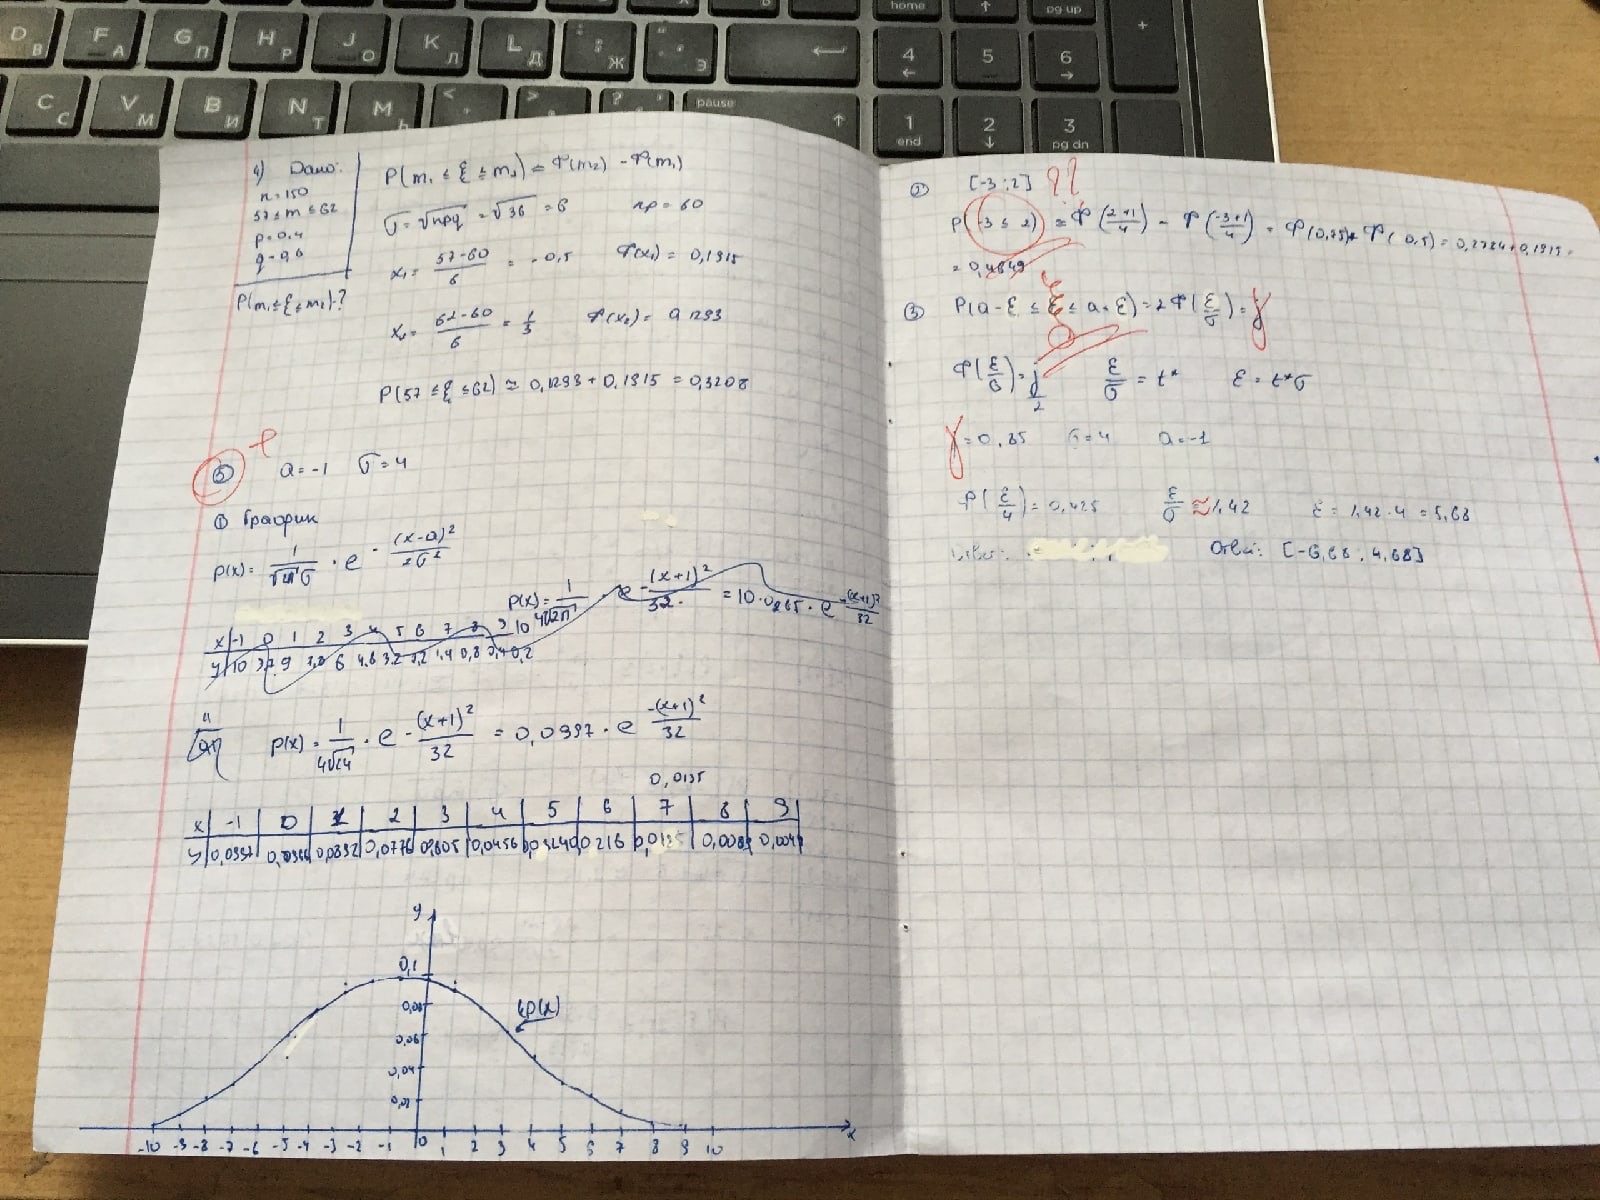 home ↑ pg up +
D В F А G П H Р J О K Л L Д : ; Ж " ' Э ← 4 ← 5 6 →
C С V М B И N Т M Ь < , > . ? pause ↑ 1 end 2 ↓ 3 pg dn
4) Дано:
n=150
57 ≤ m ≤ 62
p=0,4
q=0,6
P(m₁ ≤ ξ ≤ m₂)-?
P(m₁ ≤ ξ ≤ m₂) ≈ Φ(m₂) - Φ(m₁)
σ = √npq = √36 = 6 np = 60
x₁ = (57-60)/6 = -0,5 Φ(x₁) = 0,1915
x₂ = (62-60)/6 = 1/3 Φ(x₂) = 0,1293
P(57 ≤ ξ ≤ 62) ≈ 0,1293 + 0,1915 = 0,3208
⑤ a = -1 σ = 4
① График
p(x) = 1/(√2π σ) · e^(-(x-a)²/2σ²)
p(x) = 1/(4√2π) · e^(-(x+1)²/32) = 10·0,265 · e^(-(x+1)²/32)
x -1 0 1 2 3 4 5 6 7 8 9 10
p(x) = 1/(4√2π) · e^(-(x+1)²/32) = 0,0997 · e^(-(x+1)²/32)
0,0135
x -1 0 1 2 3 4 5 6 7 8 9
y 0,0997 0,0966 0,0882 0,0776 0,0456 0,0240 0,0216 0,0135
y
0,1
0,08
0,06
0,04
0,02
φ(x)
-10 -9 -8 -7 -6 -5 -4 -3 -2 -1 0 1 2 3 4 5 6 7 8 9 10 x
② [-3;2] ??
P(-3 ≤ 2) = Φ((2+1)/4) - Φ((-3+1)/4) = Φ(0,75) + Φ(0,5) = 0,2734 + 0,1915 =
= 0,4649
③ P(a-ε ≤ ξ ≤ a+ε) = 2Φ(ε/σ) = γ
Φ(ε/σ) = γ/2 ε/σ = t* ε = t*σ
γ = 0,85 σ = 4 a = -1
Φ(ε/4) = 0,425 ε/σ ≈ 1,42 ε = 1,42 · 4 = 5,68
Ответ: [-6,68 ; 4,68]